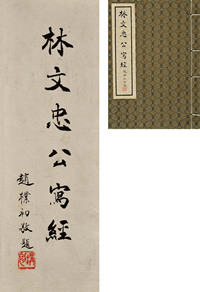 林文忠公寫經
趙樸初敬題
林文忠公寫經